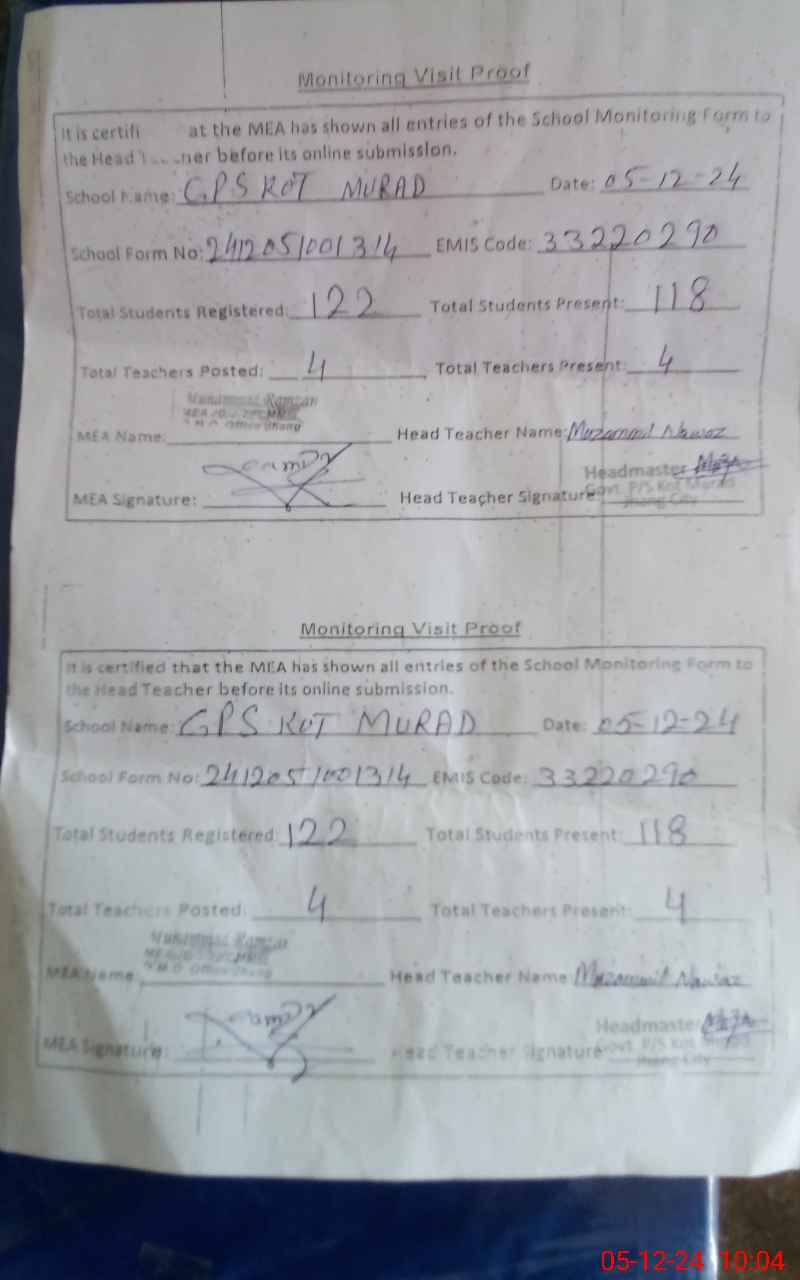 Monitoring Visit Proof
It is certifi at the MEA has shown all entries of the School Monitoring Form to
the Head ner before its online submission.
School Name: GPS KOT MURAD Date: 05-12-24
School Form No: 2412051001314 EMIS Code: 33220290
Total Students Registered: 122 Total Students Present: 118
Total Teachers Posted: 4 Total Teachers Present: 4
Muhammad Ramzan
Office Jhang
MEA Name: Head Teacher Name: Muzammil Nawaz
Headmaster
MEA Signature: Head Teacher Signature
Govt. P/S Kot Murad
Jhang City
Monitoring Visit Proof
It is certified that the MEA has shown all entries of the School Monitoring Form to
the Head Teacher before its online submission.
School Name: GPS KOT MURAD Date: 05-12-24
School Form No: 2412051001314 EMIS Code: 33220290
Total Students Registered: 122 Total Students Present: 118
Total Teachers Posted: 4 Total Teachers Present: 4
Muhammad Ramzan
Office Jhang
MEA Name: Head Teacher Name Muzammil Nawaz
Headmaster
MEA Signature: Head Teacher Signature
Govt. P/S Kot Murad
Jhang City
05-12-24 10:04